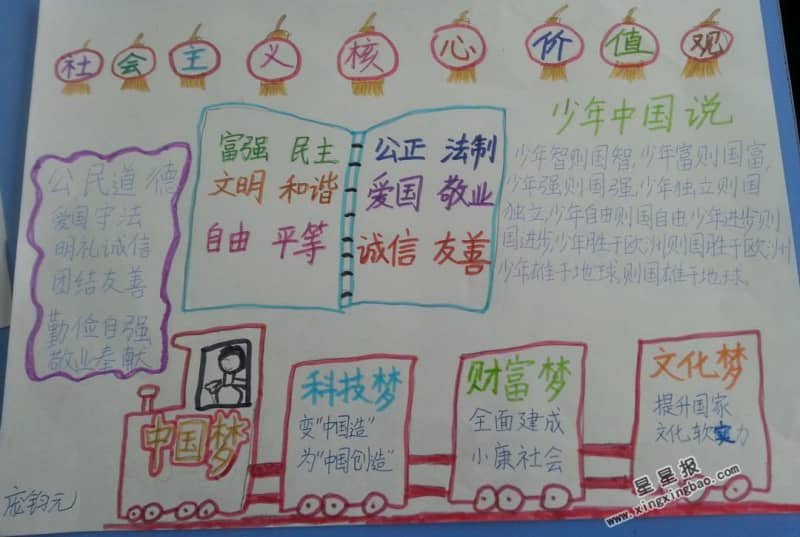 社会主义核心价值观
少年中国说
少年智则国智,少年富则国富,
少年强则国强,少年独立则国
独立,少年自由则国自由,少年进步则
国进步,少年胜于欧洲则国胜于欧洲
少年雄于地球,则国雄于地球.
富强 民主
文明 和谐
自由 平等
公正 法制
爱国 敬业
诚信 友善
公民道德
爱国守法
明礼诚信
团结友善
勤俭自强
敬业奉献
中国梦
科技梦
变"中国造"
为"中国创造"
财富梦
全面建成
小康社会
文化梦
提升国家
文化软实力
钧元
星星报
www.xingxingbao.com